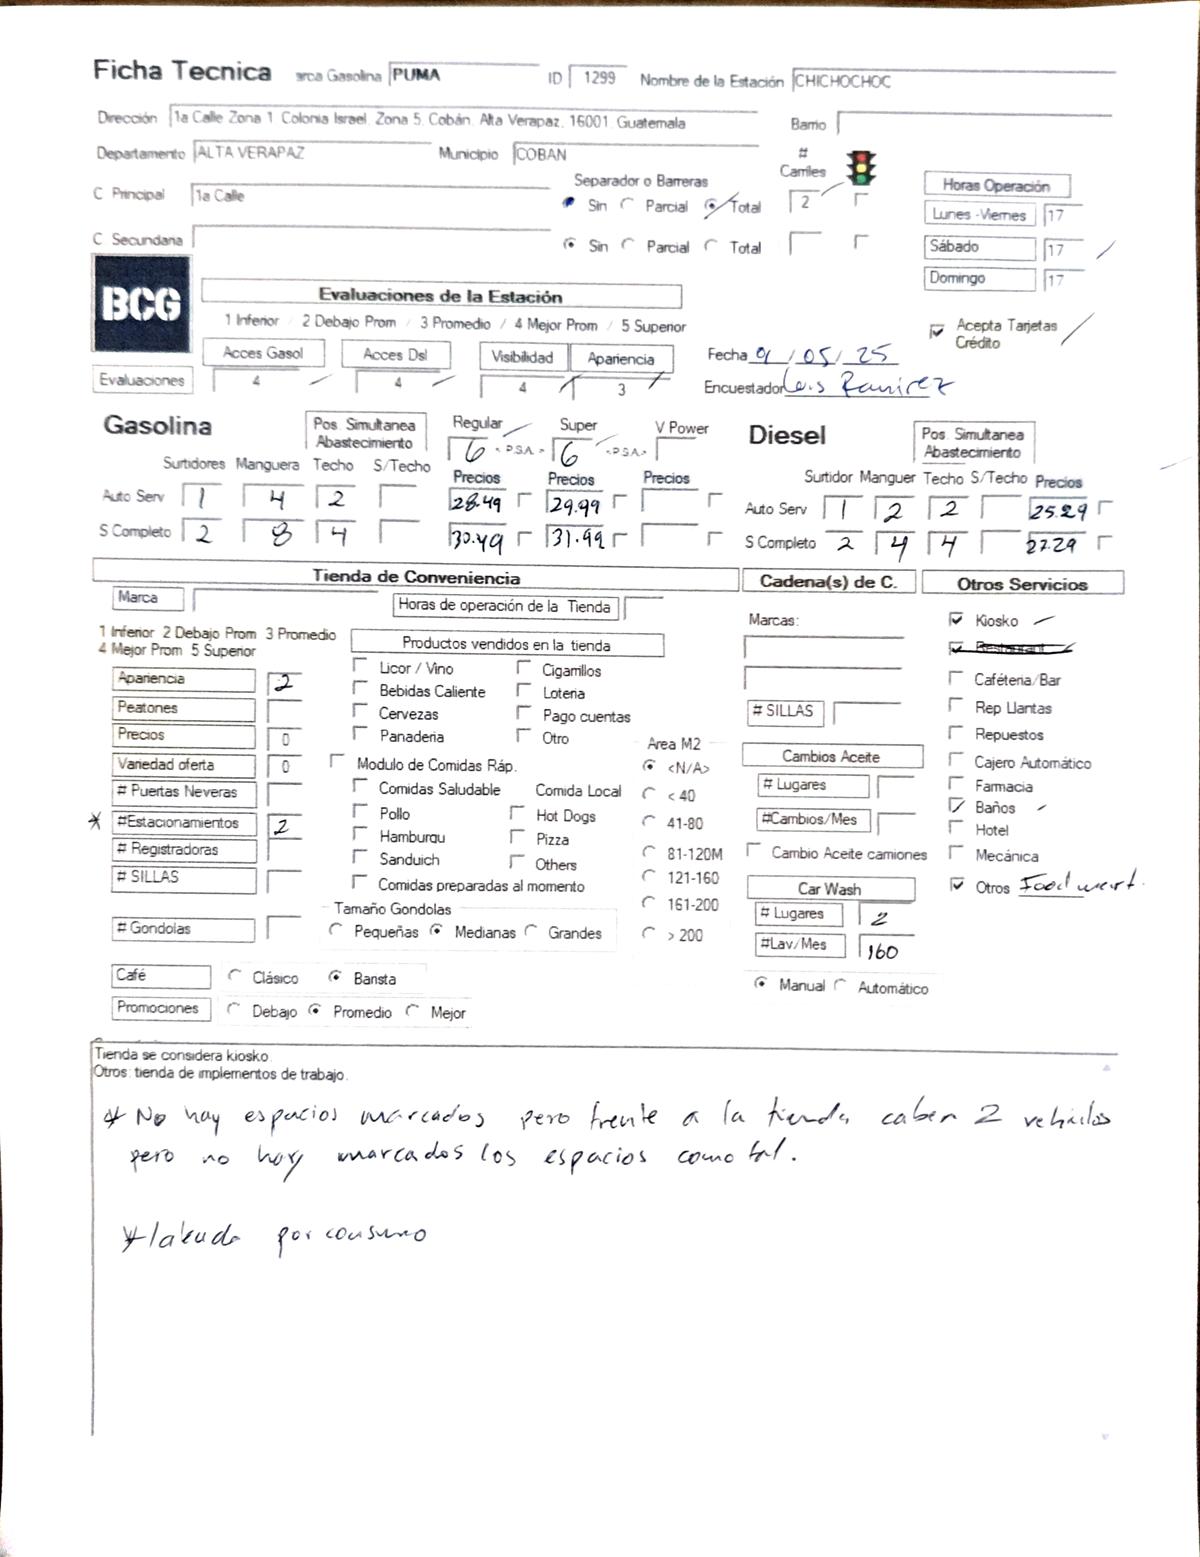 Ficha Tecnica arca Gasolina PUMA ID 1299 Nombre de la Estación CHICHOCHOC
Dirección 1a Calle Zona 1. Colonia Israel. Zona 5, Cobán. Alta Verapaz. 16001. Guatemala Barrio
Departamento ALTA VERAPAZ Municipio COBAN # Carriles
C Principal 1a Calle Separador o Barreras Sin Parcial Total 2
C. Secundaria Sin Parcial Total
Horas Operación
Lunes -Viernes 17
Sábado 17
Domingo 17
BCG
Evaluaciones de la Estación
1 Inferior / 2 Debajo Prom / 3 Promedio / 4 Mejor Prom / 5 Superior
Acepta Tarjetas Crédito
Acces Gasol Acces Dsl Visibilidad Apariencia
Evaluaciones 4 4 4 3
Fecha 01/05/25
Encuestador Luis Ramirez
Gasolina Pos. Simultanea Abastecimiento Regular Super V Power
6 < P.S.A. > 6 <P.S.A>
Surtidores Manguera Techo S/Techo Precios Precios Precios
Auto Serv 1 4 2 28.49 29.99
S Completo 2 8 4 30.49 31.99
Diesel Pos. Simultanea Abastecimiento
Surtidor Manguer Techo S/Techo Precios
Auto Serv 1 2 2 25.29
S Completo 2 4 4 27.29
Tienda de Conveniencia
Marca Horas de operación de la Tienda
1 Inferior 2 Debajo Prom 3 Promedio
4 Mejor Prom 5 Superior
Apariencia 2
Peatones
Precios 0
Variedad oferta 0
# Puertas Neveras
* #Estacionamientos 2
# Registradoras
# SILLAS
# Gondolas
Productos vendidos en la tienda
Licor / Vino Cigarrillos
Bebidas Caliente Loteria
Cervezas Pago cuentas
Panaderia Otro
Modulo de Comidas Ráp.
Comidas Saludable Comida Local
Pollo Hot Dogs
Hamburqu Pizza
Sanduich Others
Comidas preparadas al momento
Tamaño Gondolas
Pequeñas Medianas Grandes
Area M2
<N/A>
< 40
41-80
81-120M
121-160
161-200
> 200
Café Clásico Barista
Promociones Debajo Promedio Mejor
Cadena(s) de C.
Marcas:
# SILLAS
Cambios Aceite
# Lugares
#Cambios/Mes
Cambio Aceite camiones
Car Wash
# Lugares 2
#Lav/Mes 160
Manual Automático
Otros Servicios
Kiosko
Restaurant
Caféteria/Bar
Rep Llantas
Repuestos
Cajero Automático
Farmacia
Baños
Hotel
Mecánica
Otros Food
Tienda se considera kiosko.
Otros: tienda de implementos de trabajo.
* No hay espacios marcados pero frente a la tienda caben 2 vehiculos
pero no hay marcados los espacios como tal.
* por consumo